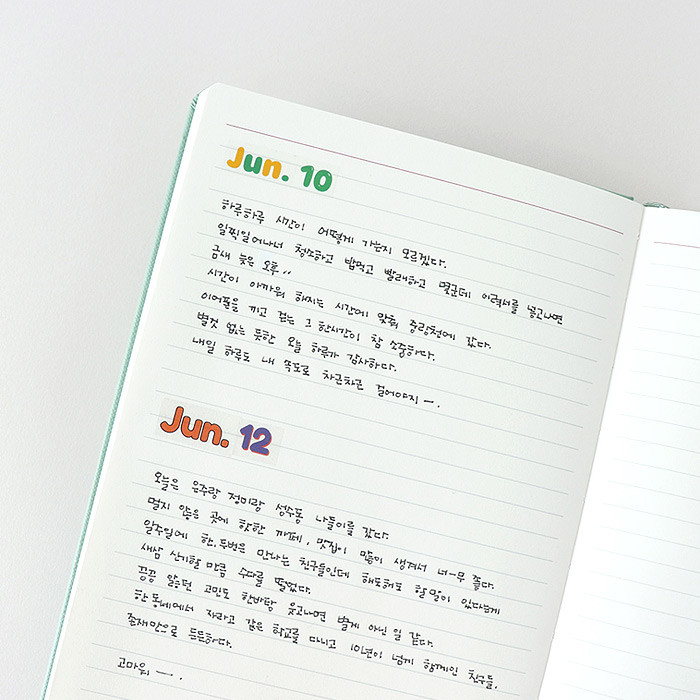 Jun. 10
하루하루 시간이 어떻게 가는지 모르겠다.
일찍일어나서 청소하고 밥먹고 빨래하고 몇군데 이력서를 넣고나면
금새 늦은 오후..
시간이 아까워 해지는 시간에 맞춰 중랑천에 갔다.
이어폰을 끼고 걷는 그 한시간이 참 소중하다.
별것 없는 듯한 오늘 하루가 감사하다.
내일 하루도 내 속도로 차근차근 걸어야지 ㅡ.
Jun. 12
오늘은 은주랑 정미랑 성수동 나들이를 갔다.
멀지 않은 곳에 핫한 까페, 맛집이 많이 생겨서 너-무 좋다.
일주일에 한,두번은 만나는 친구들인데 해도해도 할말이 있다는게
새삼 신기할 만큼 수다를 떨었다.
끙끙 앓던 고민도 한바탕 웃고나면 별게 아닌 일 같다.
한 동네에서 자라고 같은 학교를 다니고 10년이 넘게 함께인 친구들.
존재만으로 든든하다.
고마워 ㅡ.